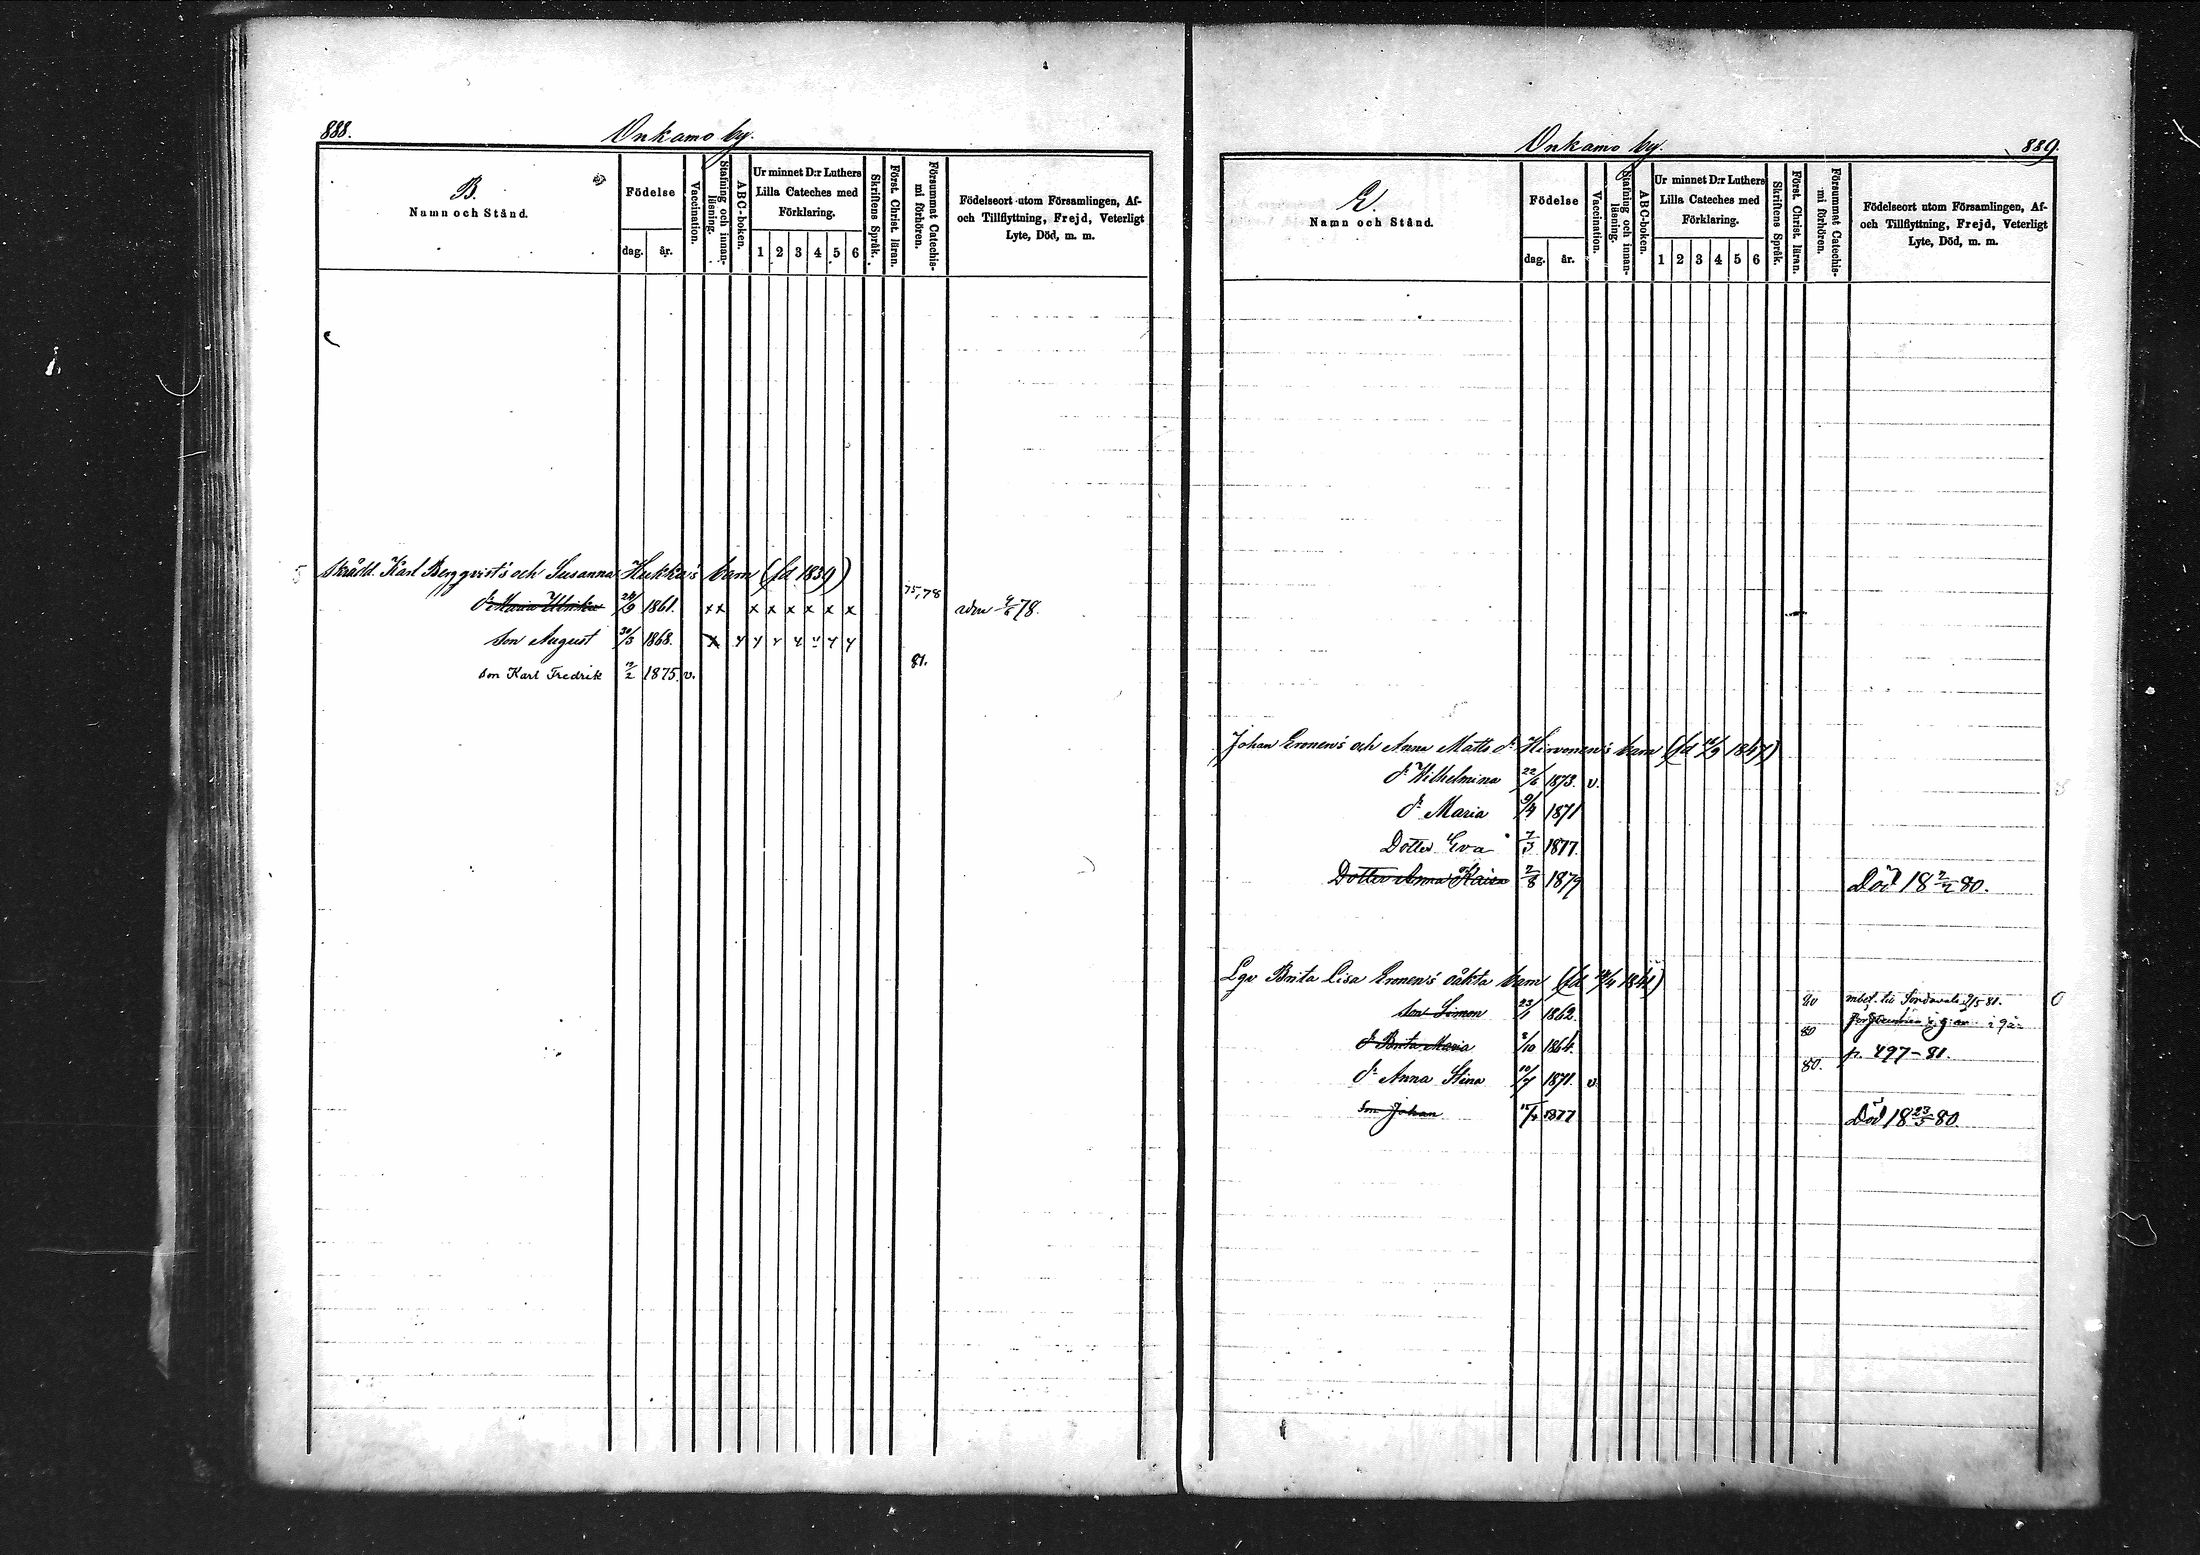 888.
Onkamo by.
B.
Namn och Stånd.
Födelse
dag. år.
Vaccination.
Stafning och innan-läsning.
ABC-boken.
Ur minnet D:r Luthers
Lilla Cateches med
Förklaring.
1 2 3 4 5 6
Skriftens Språk.
Först. Christ. läran.
Försummat Catechis-
mi förhören.
Födelseort utom Församlingen, Af-
och Tillflyttning, Frejd, Veterligt
Lyte, Död, m. m.
Skrädd. Karl Bergqvist's och Susanna Hukka's barn (fd 1839)
d:r Maria Ulrika 28/9 1861. x x x x x x x x 75, 78
son August 30/3 1868. x y y y y y y y
son Karl Fredrik 12/2 1875. v. 81.
Onkamo by.
889.
E.
Namn och Stånd.
Födelse
dag. år.
Vaccination.
Stafning och innan-läsning.
ABC-boken.
Ur minnet D:r Luthers
Lilla Cateches med
Förklaring.
1 2 3 4 5 6
Skriftens Språk.
Först. Christ. läran.
Försummat Catechis-
mi förhören.
Födelseort utom Församlingen, Af-
och Tillflyttning, Frejd, Veterligt
Lyte, Död, m. m.
Johan Eronen's och Anna Matts d:r Hirvonen's barn
d:r Wilhelmina 22/6 1873. v.
d:r Maria 9/4 1871
Dotter Eva 7/3 1877.
Dotter Anna Kaisa 2/8 1879 Död 18 80.
Lgv Brita Lisa Eronen's oäkta barn
son Simon 23/1 1862. 80
d:r Brita Maria 2/10 1864. 80 p. 497–81.
d:r Anna Stina 10/7 1871. v. 80.
son Johan 1877 Död 18 23/5 80.